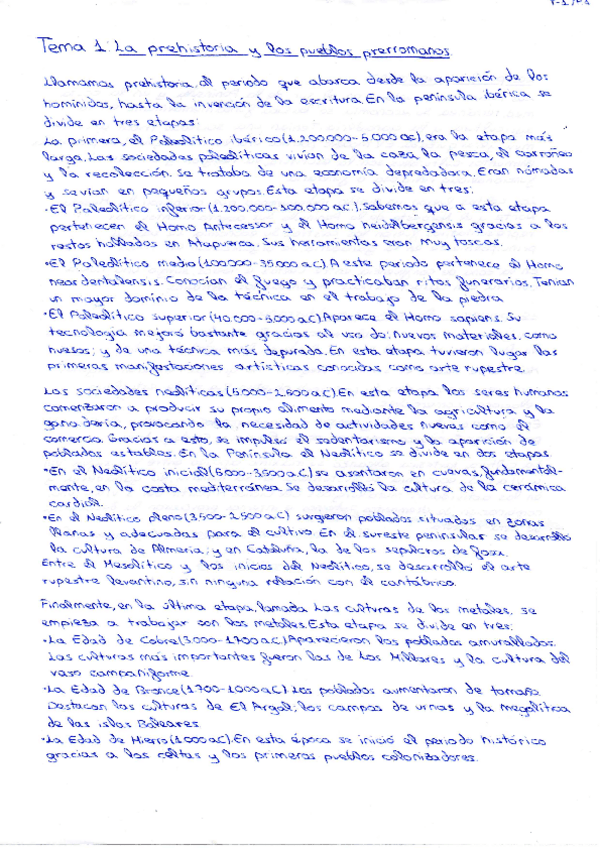 Tema 1: La prehistoria y los pueblos prerromanos.
Llamamos prehistoria al periodo que abarca desde la aparición de los
homínidos, hasta la invención de la escritura. En la península ibérica se
divide en tres etapas:
La primera, el Paleolítico ibérico (1.200.000-5.000 aC), era la etapa más
larga. Las sociedades paleolíticas vivían de la caza, la pesca, el carroñeo
y la recolección. Se trataba de una economía depredadora. Eran nómadas
y se vían en pequeños grupos. Esta etapa se divide en tres:
·El Paleolítico inferior (1.200.000-100.000 a.C.). Sabemos que a esta etapa
pertenecen el Homo Antecessor y el Homo neidelbergensis gracias a los
restos hallados en Atapuerca. Sus herramientas eran muy toscas.
·El Paleolítico medio (100000-35000 a.C). A este periodo pertenece el Homo
neardentalensis. Conocían el fuego y practicaban ritos funerarios. Tenían
un mayor dominio de la técnica en el trabajo de la piedra
·El Paleolítico superior (40.000-5.000 a.C) Aparece el Homo sapiens. Su
tecnología mejoró bastante gracias al uso de: nuevos materiales, como
huesos; y de una técnica más depurada. En esta etapa tuvieron lugar las
primeras manifestaciones artísticas conocidas como arte rupestre.
Las sociedades neolíticas (5.000-2.500 a.C). En esta etapa los seres humanos
comenzaron a producir su propio alimento mediante la agricultura y la
ganadería, provocando la necesidad de actividades nuevas como el
comercio. Gracias a esto, se impulsó el sedentarismo y la aparición de
poblados estables. En la Península el Neolítico se divide en dos etapas
·En el Neolítico inicial (5000-3500 a.C) se asentaron en cuevas, fundamental-
mente, en la costa mediterránea. Se desarrolló la cultura de la cerámica
cardial.
·En el Neolítico pleno (3500-2500 a.C) surgieron poblados situados en zonas
llanas y adecuadas para el cultivo. En el sureste peninsular se desarrolló
la cultura de Almería; y en Cataluña, la de los sepulcros de fosa.
Entre el Mesolítico y los inicios del Neolítico, se desarrolló el arte
rupestre levantino, sin ninguna relación con el cantábrico.
Finalmente, en la última etapa, llamada Las culturas de los metales, se
empieza a trabajar con los metales. Esta etapa se divide en tres:
·La Edad de Cobre (3.000-1700 a.C) Aparecieron los poblados amurallados.
Las culturas más importantes fueron las de Los Millares y la cultura del
vaso campaniforme.
·La Edad de Bronce (1700-1000 a.C). Los poblados aumentaron de tamaño.
Destacan las culturas de El Argal; los campos de urnas y la megalítica
de las islas Baleares.
·La Edad de Hierro (1000 a.C). En esta época se inició el periodo histórico
gracias a los celtas y los primeros pueblos colonizadores.